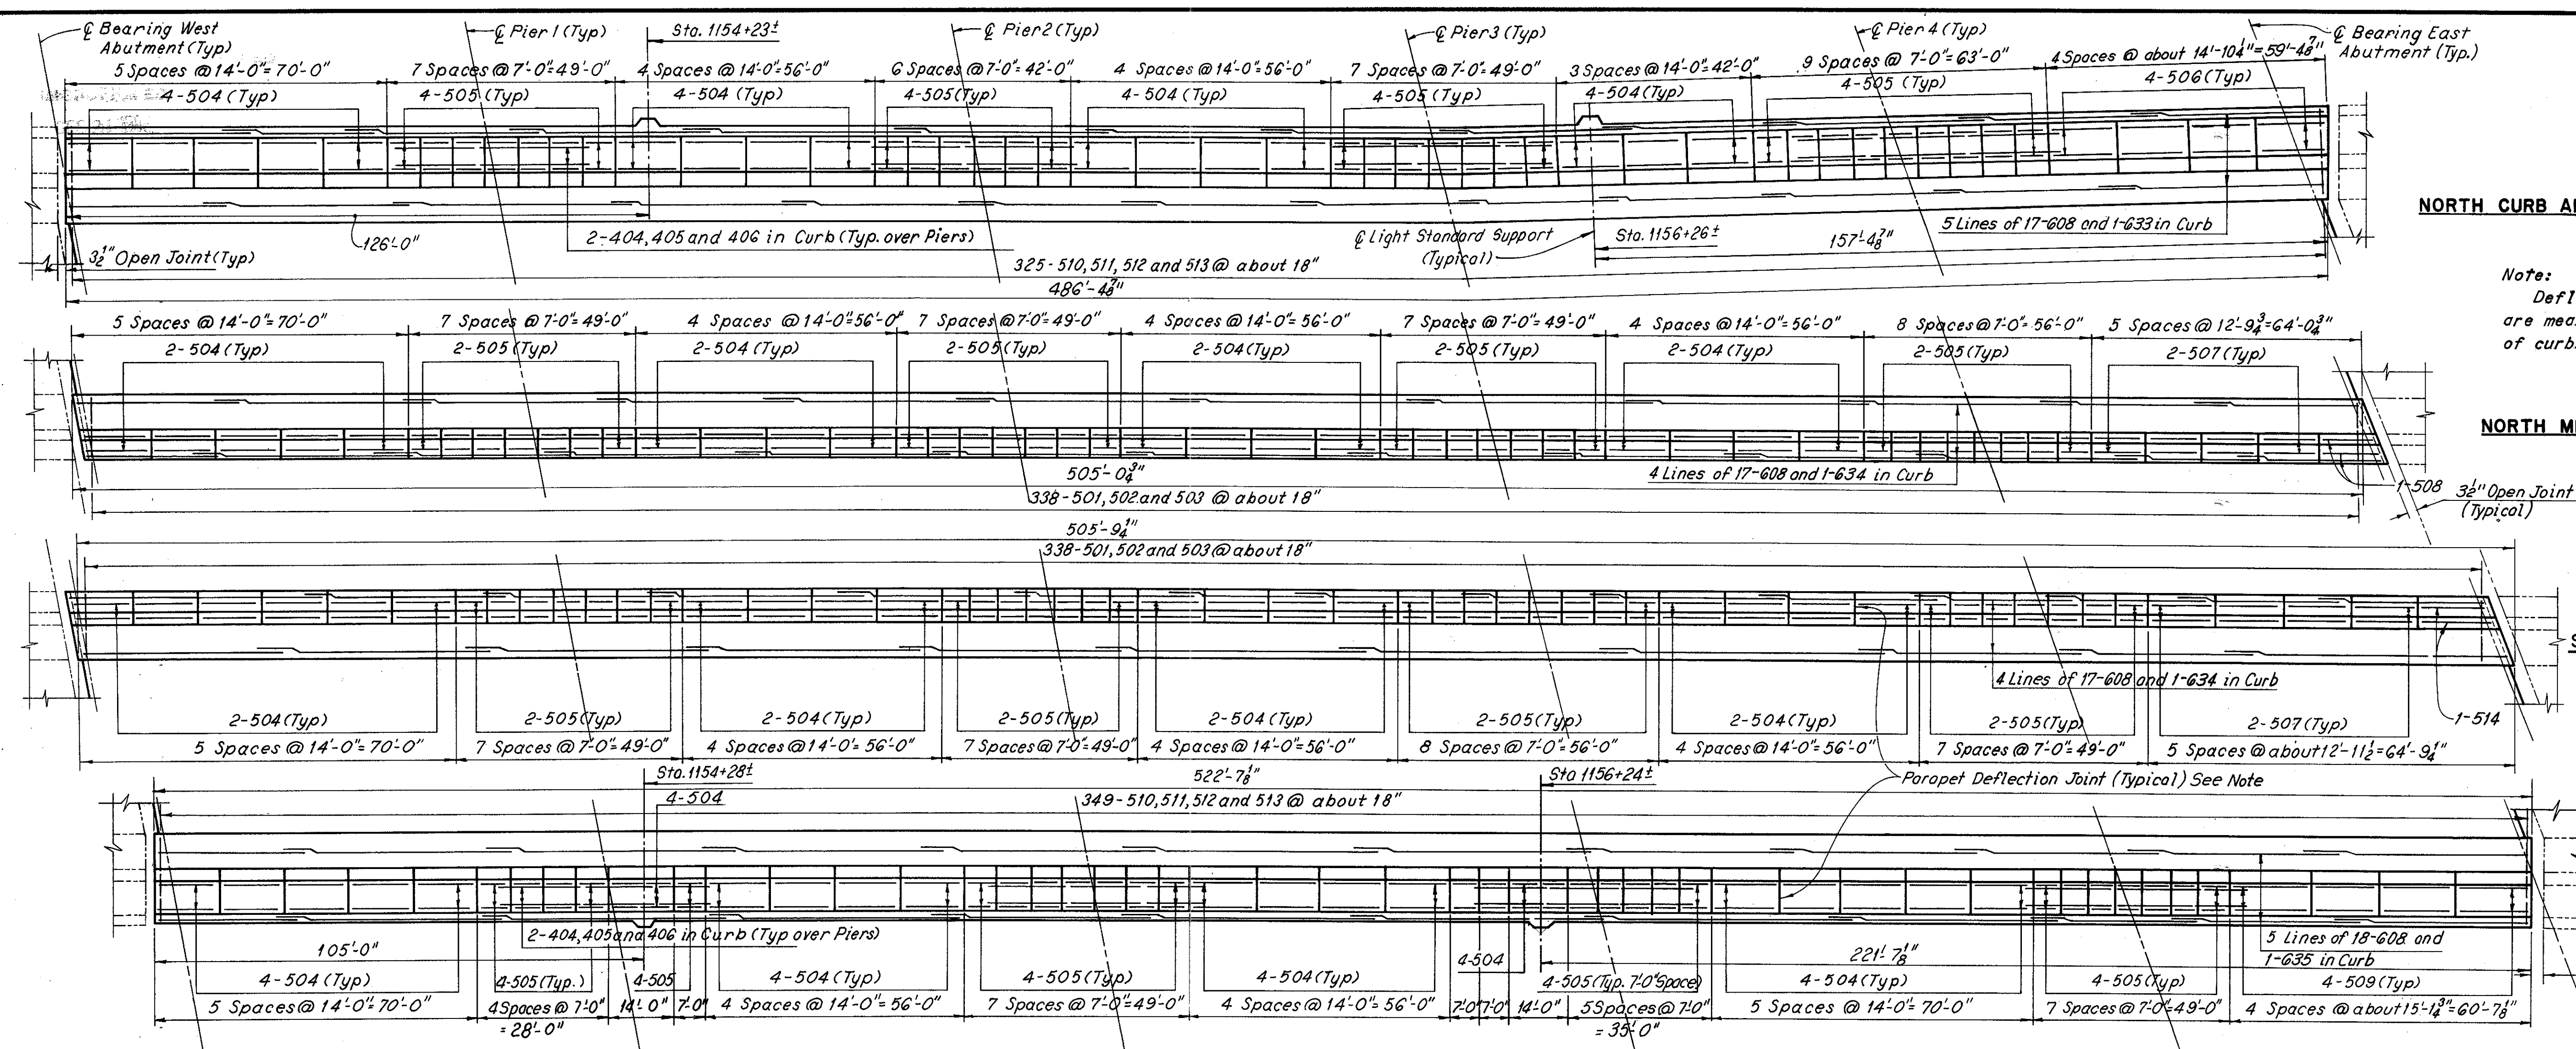 ℄ Bearing West
Abutment (Typ)
℄ Pier 1 (Typ)
Sta. 1154+23±
℄ Pier 2 (Typ)
℄ Pier 3 (Typ)
℄ Pier 4 (Typ)
℄ Bearing East
Abutment (Typ.)
5 Spaces @ 14'-0" = 70'-0"
7 Spaces @ 7'-0" = 49'-0"
4 Spaces @ 14'-0" = 56'-0"
6 Spaces @ 7'-0" = 42'-0"
4 Spaces @ 14'-0" = 56'-0"
7 Spaces @ 7'-0" = 49'-0"
3 Spaces @ 14'-0" = 42'-0"
9 Spaces @ 7'-0" = 63'-0"
4 Spaces @ about 14'-10 1/4" = 59'-4 7/8"
4-504 (Typ)
4-505 (Typ)
4-504 (Typ)
4-505 (Typ)
4-504 (Typ)
4-505 (Typ)
4-504 (Typ)
4-505 (Typ)
4-506 (Typ)
NORTH CURB
126'-0"
2-404, 405 and 406 in Curb (Typ. over Piers)
℄ Light Standard Support
(Typical)
Sta. 1156+26±
157'-4 7/8"
5 Lines of 17-608 and 1-633 in Curb
3 1/2" Open Joint (Typ)
325-510, 511, 512 and 513 @ about 18"
486'-4 7/8"
Note:
Defl
are mea
of curb
5 Spaces @ 14'-0" = 70'-0"
7 Spaces @ 7'-0" = 49'-0"
4 Spaces @ 14'-0" = 56'-0"
7 Spaces @ 7'-0" = 49'-0"
4 Spaces @ 14'-0" = 56'-0"
7 Spaces @ 7'-0" = 49'-0"
4 Spaces @ 14'-0" = 56'-0"
8 Spaces @ 7'-0" = 56'-0"
5 Spaces @ 12'-9 3/4" = 64'-0 3/4"
2-504 (Typ)
2-505 (Typ)
2-504 (Typ)
2-505 (Typ)
2-504 (Typ)
2-505 (Typ)
2-504 (Typ)
2-505 (Typ)
2-507 (Typ)
NORTH M
505'-0 3/4"
4 Lines of 17-608 and 1-634 in Curb
1-508
3 1/2" Open Joint
(Typical)
338-501, 502 and 503 @ about 18"
505'-9 1/4"
338-501, 502 and 503 @ about 18"
S
4 Lines of 17-608 and 1-634 in Curb
2-504 (Typ)
2-505 (Typ)
2-504 (Typ)
2-505 (Typ)
2-504 (Typ)
2-505 (Typ)
2-504 (Typ)
2-505 (Typ)
2-507 (Typ)
1-514
5 Spaces @ 14'-0" = 70'-0"
7 Spaces @ 7'-0" = 49'-0"
4 Spaces @ 14'-0" = 56'-0"
7 Spaces @ 7'-0" = 49'-0"
4 Spaces @ 14'-0" = 56'-0"
8 Spaces @ 7'-0" = 56'-0"
4 Spaces @ 14'-0" = 56'-0"
7 Spaces @ 7'-0" = 49'-0"
5 Spaces @ about 12'-11 1/2" = 64'-9 1/4"
Sta. 1154+28±
522'-7 1/8"
Sta 1156+24±
Parapet Deflection Joint (Typical) See Note
4-504
349-510, 511, 512 and 513 @ about 18"
2-404, 405 and 406 in Curb (Typ over Piers)
105'-0"
221'-7 1/8"
5 Lines of 18-608 and
1-635 in Curb
4-504 (Typ)
4-505 (Typ.)
4-505
4-504 (Typ)
4-505 (Typ)
4-504 (Typ)
4-504
4-505 (Typ. 7'-0" Space)
4-504 (Typ)
4-505 (Typ)
4-509 (Typ)
5 Spaces @ 14'-0" = 70'-0"
4 Spaces @ 7'-0"
= 28'-0"
14'-0"
7'-0"
4 Spaces @ 14'-0" = 56'-0"
7 Spaces @ 7'-0" = 49'-0"
4 Spaces @ 14'-0" = 56'-0"
7'-0"
7'-0"
14'-0"
5 Spaces @ 7'-0"
= 35'-0"
5 Spaces @ 14'-0" = 70'-0"
7 Spaces @ 7'-0" = 49'-0"
4 Spaces @ about 15'-1 3/4" = 60'-7 1/8"